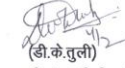 4/2
(डी.के.तुली)